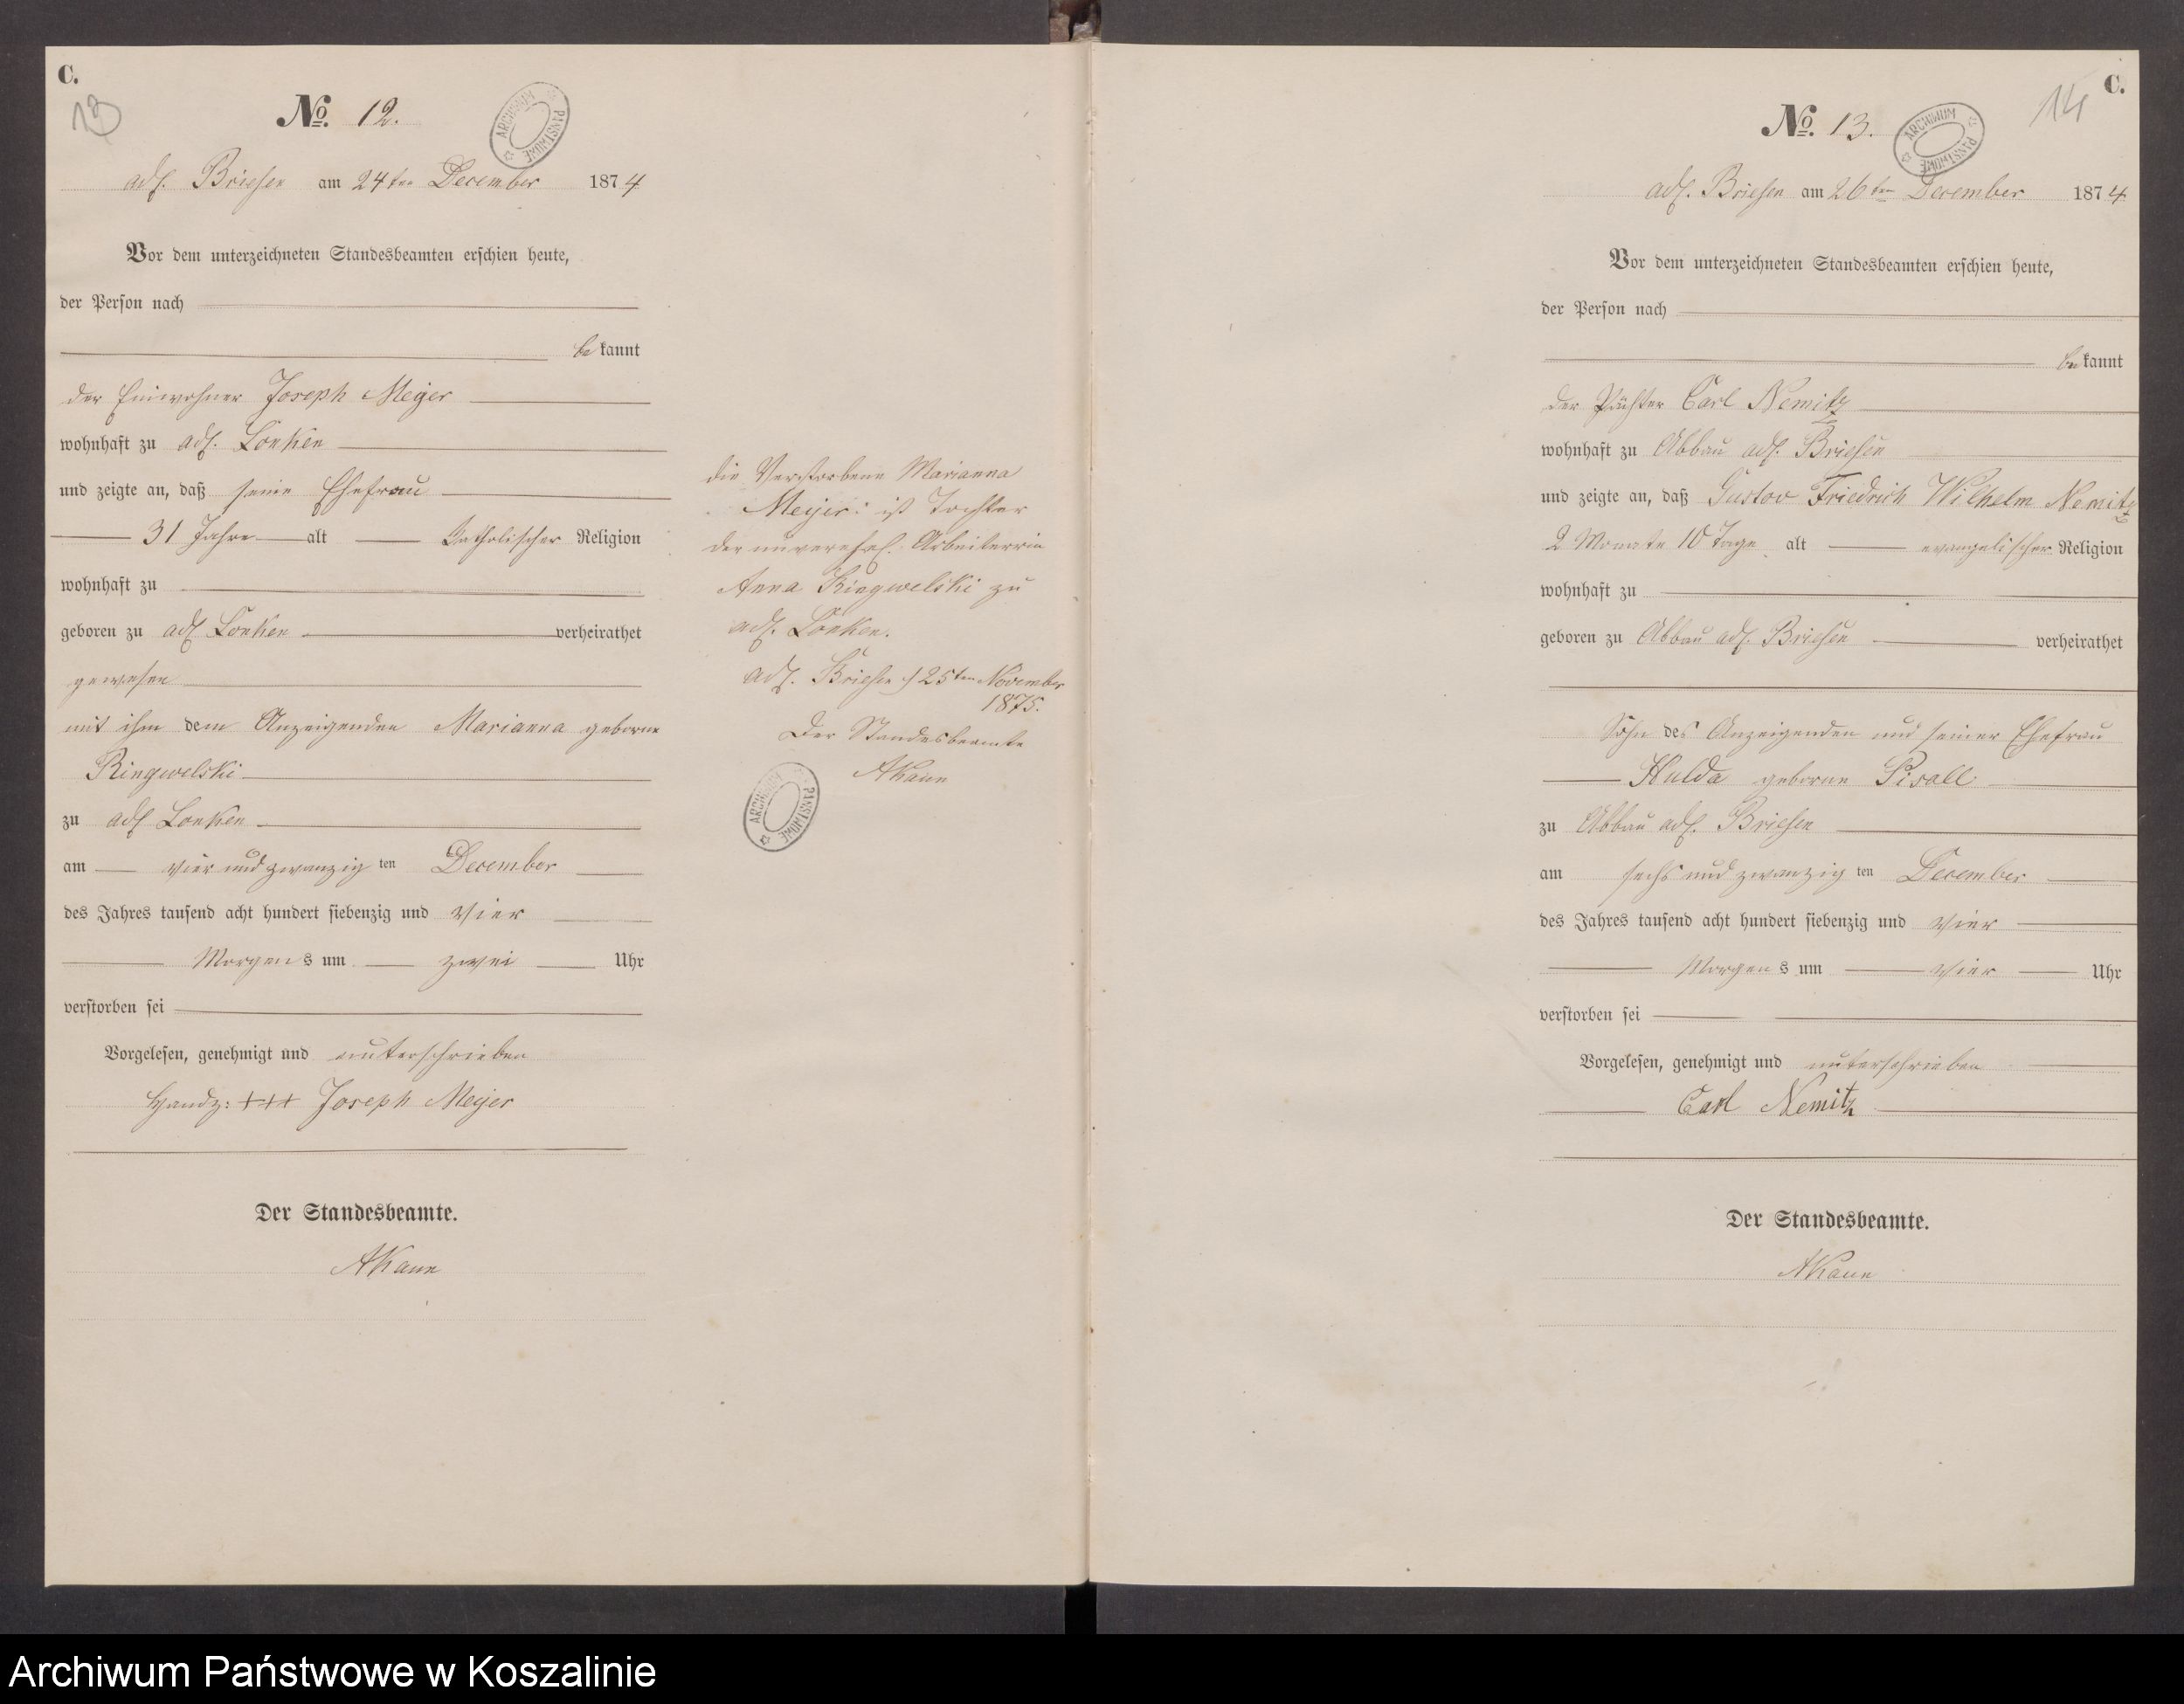 C.
13
No. 12.
ARCHIWUM PAŃSTWOWE
adl. Briesen am 24ten December 1874
Vor dem unterzeichneten Standesbeamten erschien heute,
der Person nach
bekannt
der Einwohner Joseph Meyer
wohnhaft zu adl. Lonken
und zeigte an, daß seine Ehefrau
31 Jahre alt Katholischer Religion
wohnhaft zu
geboren zu adl Lonken verheirathet
gewesen
mit ihm dem Anzeigenden Marianna geborne
Ringwelski
zu adl Lonken
am vier und zwanzig ten December
des Jahres tausend acht hundert siebenzig und vier
Morgens um zwei Uhr
verstorben sei
Vorgelesen, genehmigt und unterschrieben
Handz: +++ Joseph Meyer
Der Standesbeamte.
AKaun
die Verstorbene Marianna
Meyer: ist Tochter
der unverehel. Arbeiterrin
Anna Ringwelski zu
adl. Lonken.
adl. Briesen 25ten November
1875.
Der Standesbeamte
AKaun
ARCHIWUM PAŃSTWOWE
C.
14
No. 13.
ARCHIWUM PAŃSTWOWE
adl. Briesen am 26ten December 1874
Vor dem unterzeichneten Standesbeamten erschien heute,
der Person nach
bekannt
der Pächter Carl Nemitz
wohnhaft zu Abbau adl. Briesen
und zeigte an, daß Gustav Friedrich Wilhelm Nemitz
2 Monate 10 Tage alt evangelischer Religion
wohnhaft zu
geboren zu Abbau adl. Briesen verheirathet
Sohn des Anzeigenden und seiner Ehefrau
Hulda geborne
zu Abbau adl. Briesen
am sechs und zwanzig ten December
des Jahres tausend acht hundert siebenzig und vier
Morgens um vier Uhr
verstorben sei
Vorgelesen, genehmigt und unterschrieben
Carl Nemitz
Der Standesbeamte.
AKaun
Archiwum Państwowe w Koszalinie